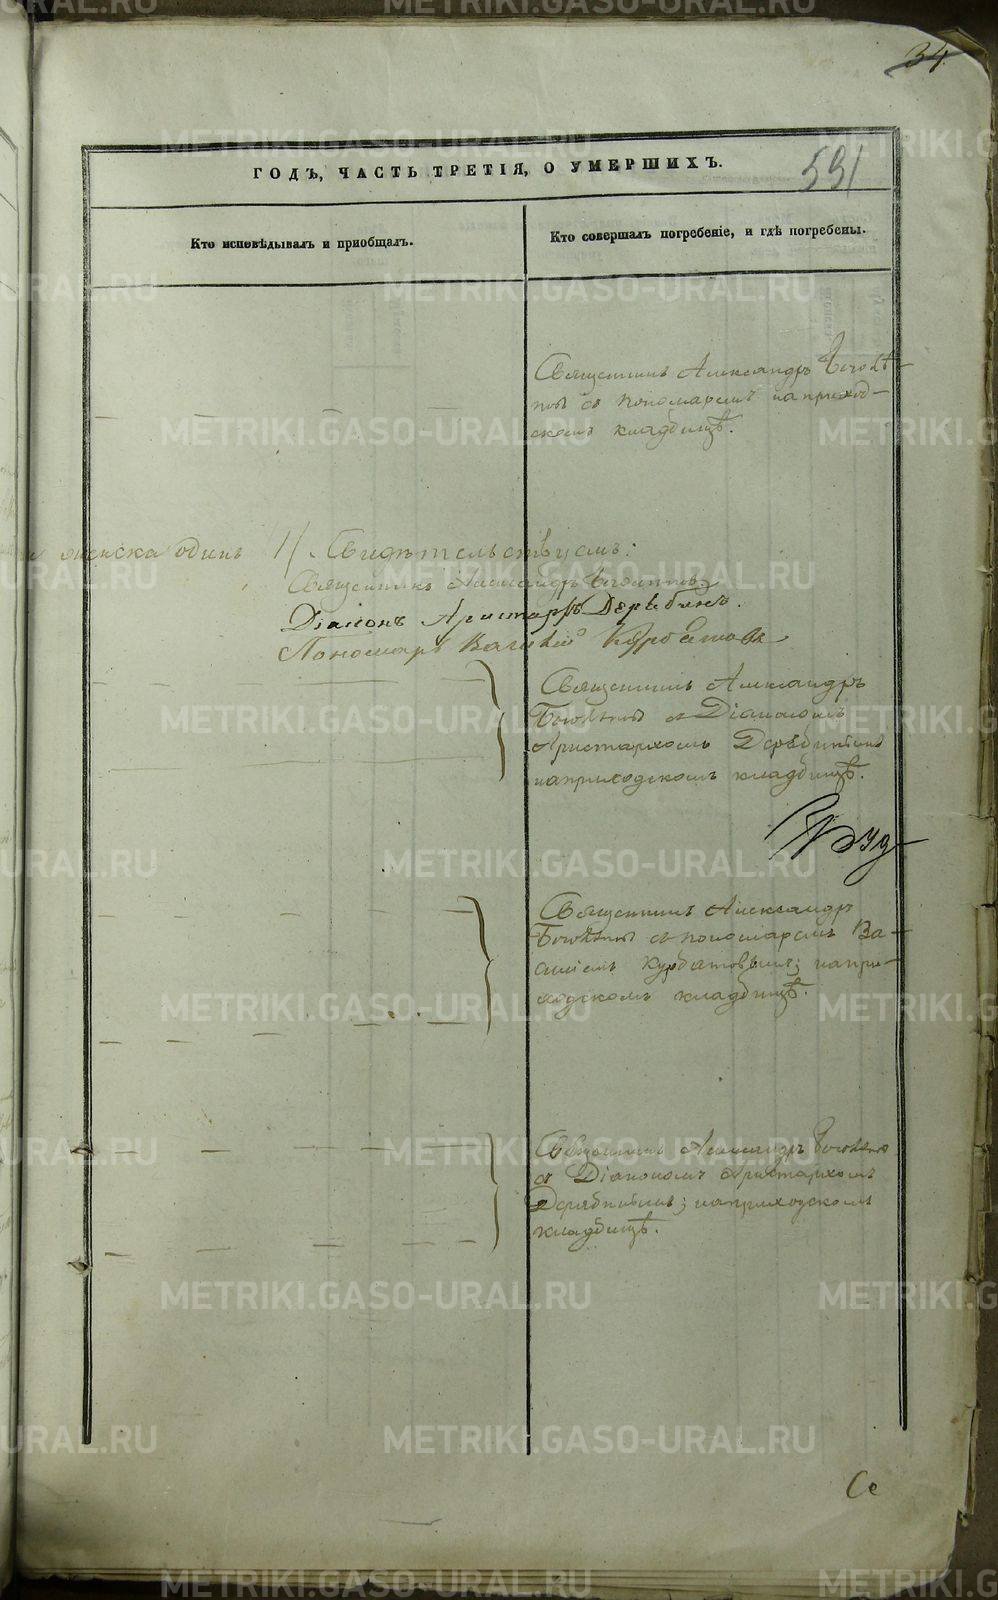 34
ГОДЪ, ЧАСТЬ ТРЕТІЯ, О УМЕРШИХЪ.
591
Кто исповѣдывалъ и пріобщалъ.
Кто совершалъ погребеніе, и гдѣ погребены.
Священникъ Александръ
съ пономаремъ на приход-
скомъ кладбищѣ.
женска одинъ 1/. Свидѣтельствуемъ:
Священникъ Александръ
Діаконъ Аристархъ Дерябинъ.
Пономарь Василій Курбатовъ
Священникъ Александръ
съ Діакономъ
Аристархомъ Дерябинымъ
на приходскомъ кладбищѣ.
Священникъ Александръ
съ пономаремъ Ва-
силіемъ Курбатовымъ; на при-
ходскомъ кладбищѣ.
Священникъ Александръ
съ Діакономъ Аристархомъ
Дерябинымъ; на приходскомъ
кладбищѣ.
Се
METRIKI.GASO-URAL.RU